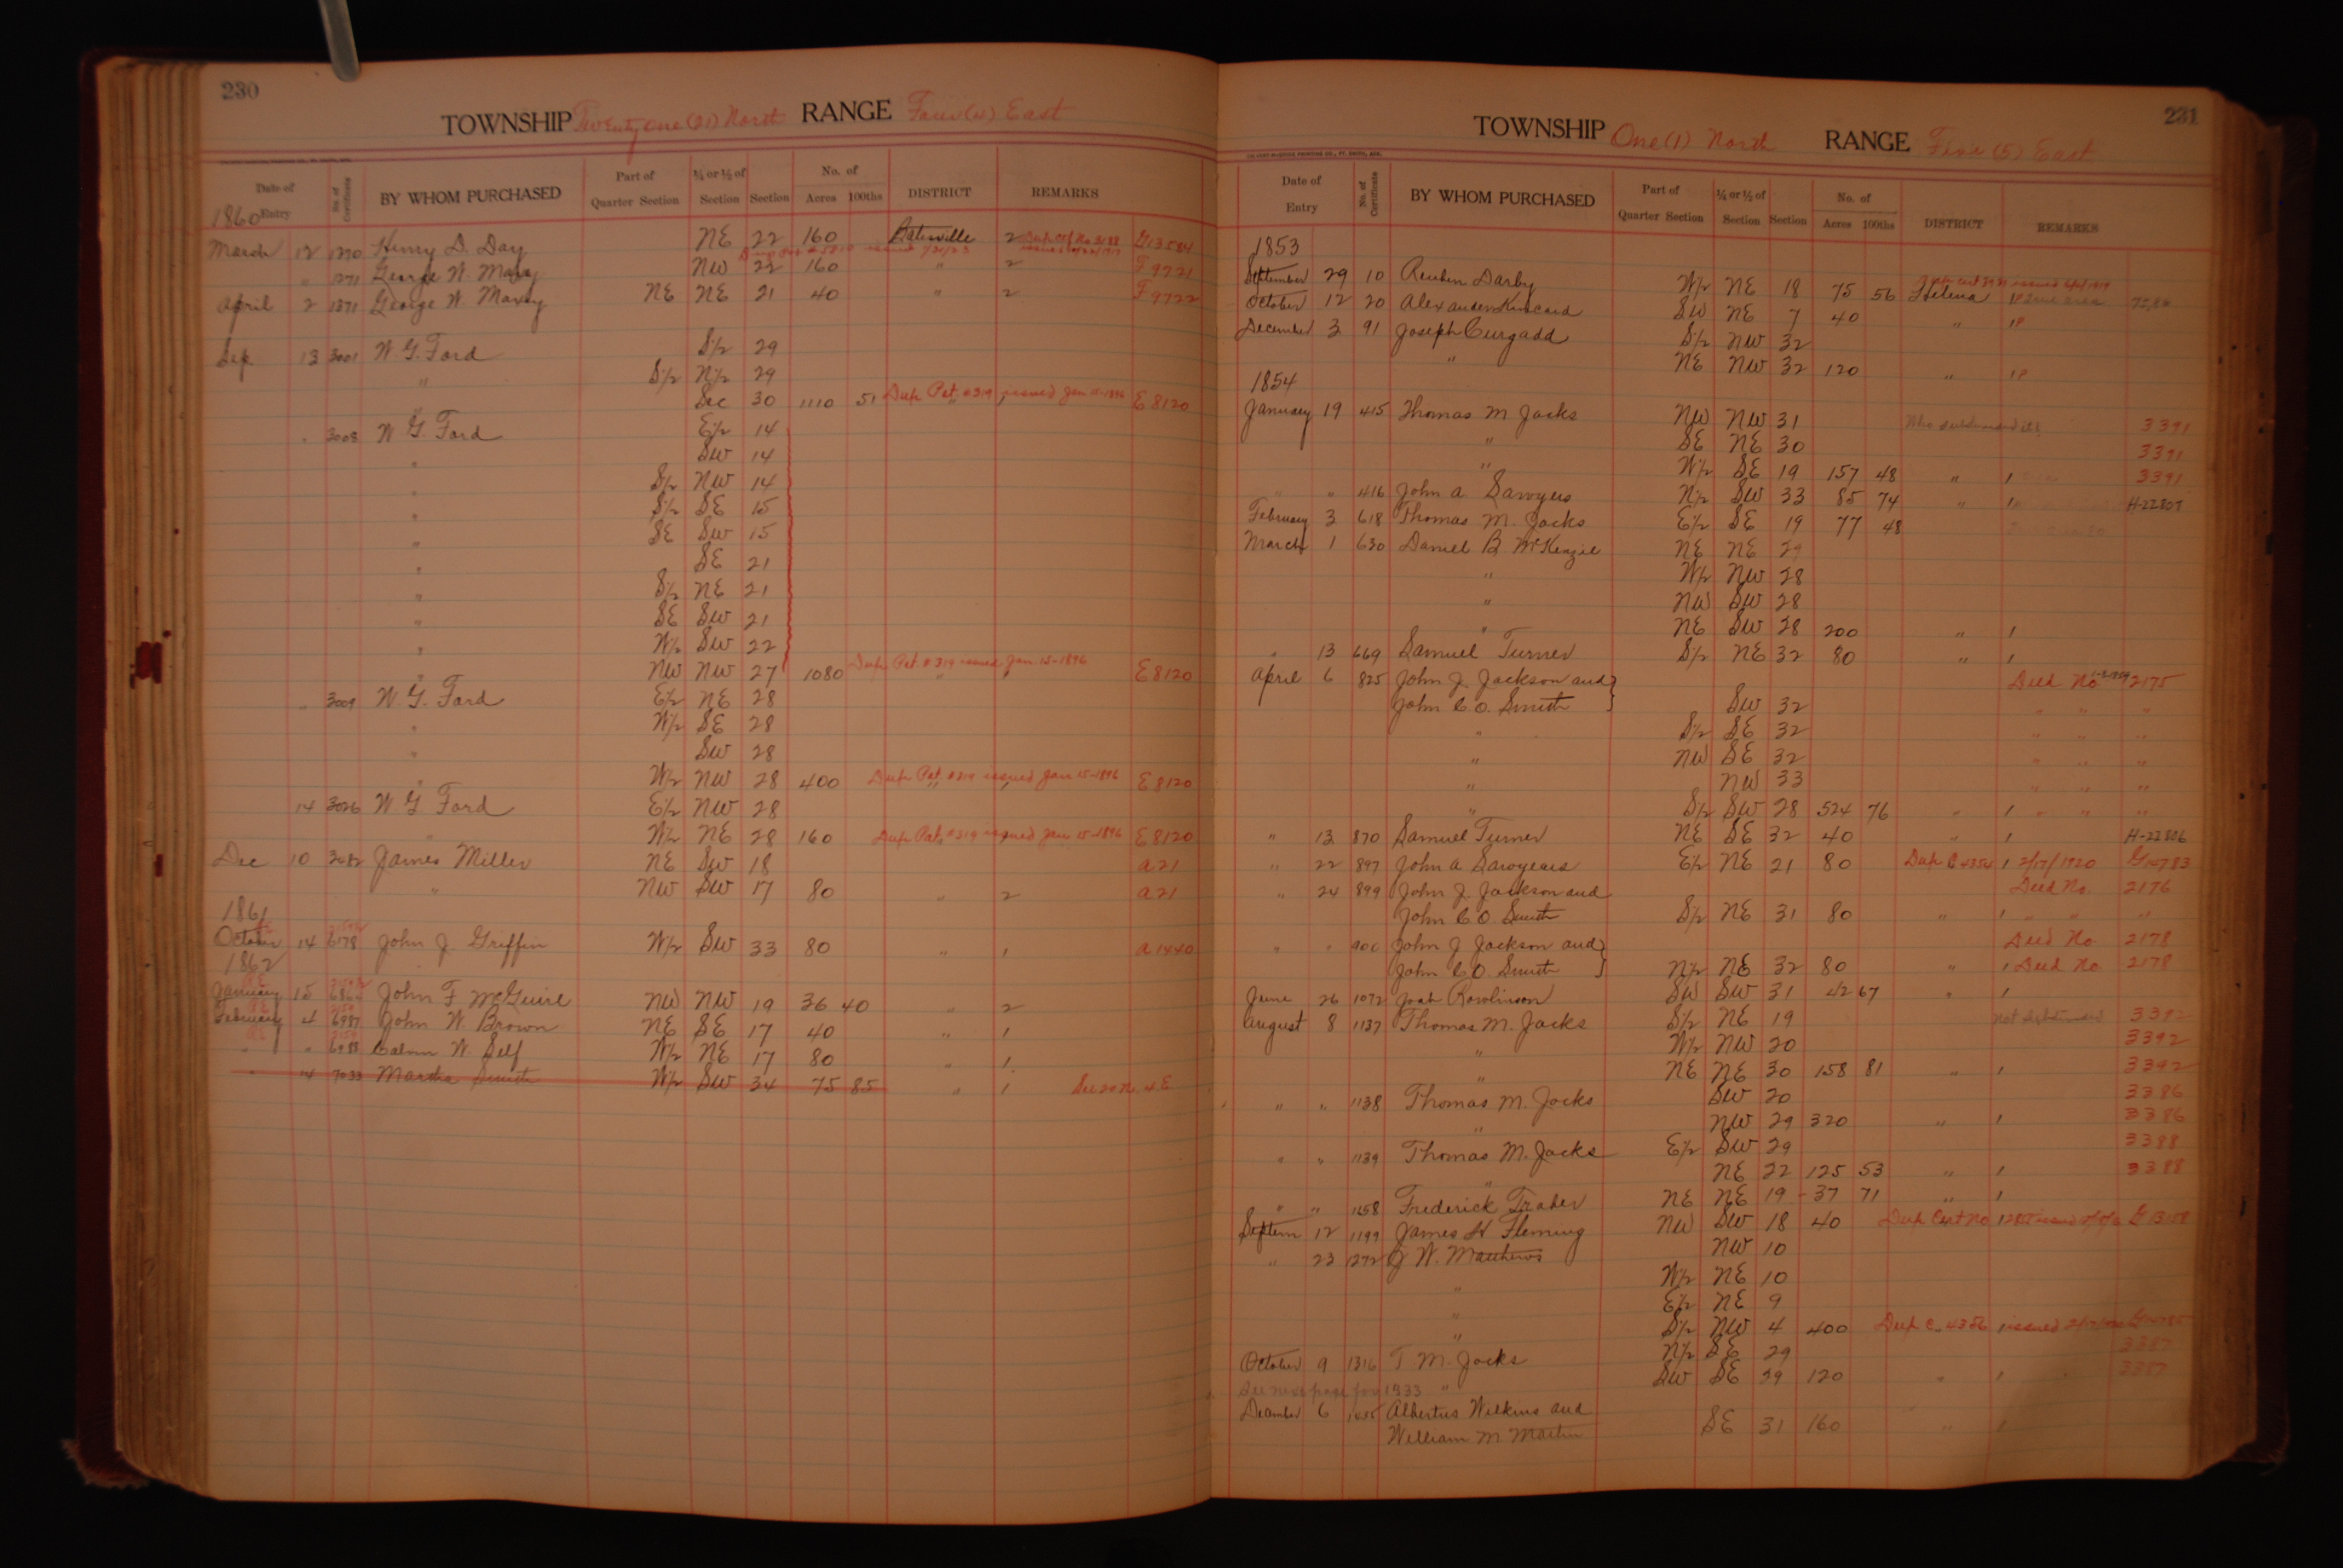 230
TOWNSHIP Twenty one (21) North RANGE Four (4) East
Date of Entry No. of Certificate BY WHOM PURCHASED Part of Quarter Section ¼ or ½ of Section Section No. of Acres 100ths DISTRICT REMARKS
1860
March 12 1270 Henry D. Day NE 22 160 Batesville 2 G13584
" 1271 George W. Maxey NW 22 160 " 2 F9721
April 2 1371 George W. Maxey NE NE 21 40 " 2 F9722
Sep. 13 3001 W. G. Ford S½ 29
" S½ N½ 29
Sec 30 1110 51 Dup Pat. #319 issued Jan 15-1896 E8120
" 3008 W. G. Ford E½ 14
" SW 14
" S½ NW 14
" S½ SE 15
" SE SW 15
" SE 21
" S½ NE 21
" SE SW 21
" W½ SW 22
" NW NW 27 1080 Dup Pat. #319 issued Jan. 15-1896 E8120
" 3009 W. G. Ford E½ NE 28
" W½ SE 28
" SW 28
" W½ NW 28 400 Dup Pat #319 issued Jan 15-1896 E8120
14 3026 W G Ford E½ NW 28
" W½ NE 28 160 Dup Pat. #319 issued Jan 15-1896 E8120
Dec 10 3682 James Miller NE SW 18 A21
" NW SW 17 80 " 2 A21
1861
October 14 6178 John J. Griffin W½ SW 33 80 " 1 A1440
1862
January 15 John F McGuire NW NW 19 36 40 " 2
February 4 6987 John W. Brown NE SE 17 40 " 1
" " 6988 Calvin W. Self W½ NE 17 80 " 1
" 14 7033 Martha Smith W½ SW 34 75 85 " 1 See 20 N. 4 E
231
TOWNSHIP One (1) North RANGE Five (5) East
Date of Entry No. of Certificate BY WHOM PURCHASED Part of Quarter Section ¼ or ½ of Section Section No. of Acres 100ths DISTRICT REMARKS
1853
September 29 10 Reuben Darby W½ NE 18 75 56 Helena
October 12 20 Alexander Kincard SW NE 7 40 " 1P
December 3 91 Joseph Curgadd S½ NW 32
" NE NW 32 120 " 1P
1854
January 19 415 Thomas M Jacks NW NW 31 3391
" SE NE 30 3391
" W½ SE 19 157 48 " 1 3391
" " 416 John A Sawyers N½ SW 33 85 74 " 1 H-22807
February 3 618 Thomas M. Jacks E½ SE 19 77 48
March 1 630 Daniel B McKenzie NE NE 29
" W½ NW 28
" NW SW 28
" NE SW 28 200 " 1
" 13 669 Samuel Turner S½ NE 32 80 " 1
April 6 825 John J. Jackson and Deed No 2175
John C. O. Smith SW 32 " " "
" S½ SE 32 " " "
" NW SE 32 " " "
" NW 33 " " "
" S½ SW 28 524 76 " 1 " " "
" 13 870 Samuel Turner NE SE 32 40 " 1 H-22806
" 22 897 John A Sawyears E½ NE 21 80 Dup C 4354 1 2/17/1920 G14783
" 24 899 John J. Jackson and Deed No. 2176
John C O. Smith S½ NE 31 80 " 1 " " "
" " 900 John J Jackson and Deed No 2178
John C O. Smith N½ NE 32 80 " 1 Deed No 2178
June 26 1072 Joab Rawlinson SW SW 31 42 67 " 1
August 8 1137 Thomas M. Jacks S½ NE 19 3392
" W½ NW 20 3392
" NE NE 30 158 81 " 1 3392
" " 1138 Thomas M. Jacks SW 20 3386
" NW 29 320 " 1 3386
" " 1139 Thomas M. Jacks E½ SW 29 3388
" NE 22 125 53 " 1 3388
" " 1158 Frederick Traber NE NE 19 37 71 " 1
Septem 12 1199 James H Fleming NW SW 18 40 Dup Cert No
" 23 1272 J W. Matthews NW 10
" W½ NE 10
" E½ NE 9
" S½ NW 4 400 Dup C. 4356 issued
October 9 1316 T M. Jacks N½ SE 29 3387
See next page for 1333 " SW SE 29 120 " 1 3387
December 6 Albertus Wilkins and
William M. Martin SE 31 160 " 1